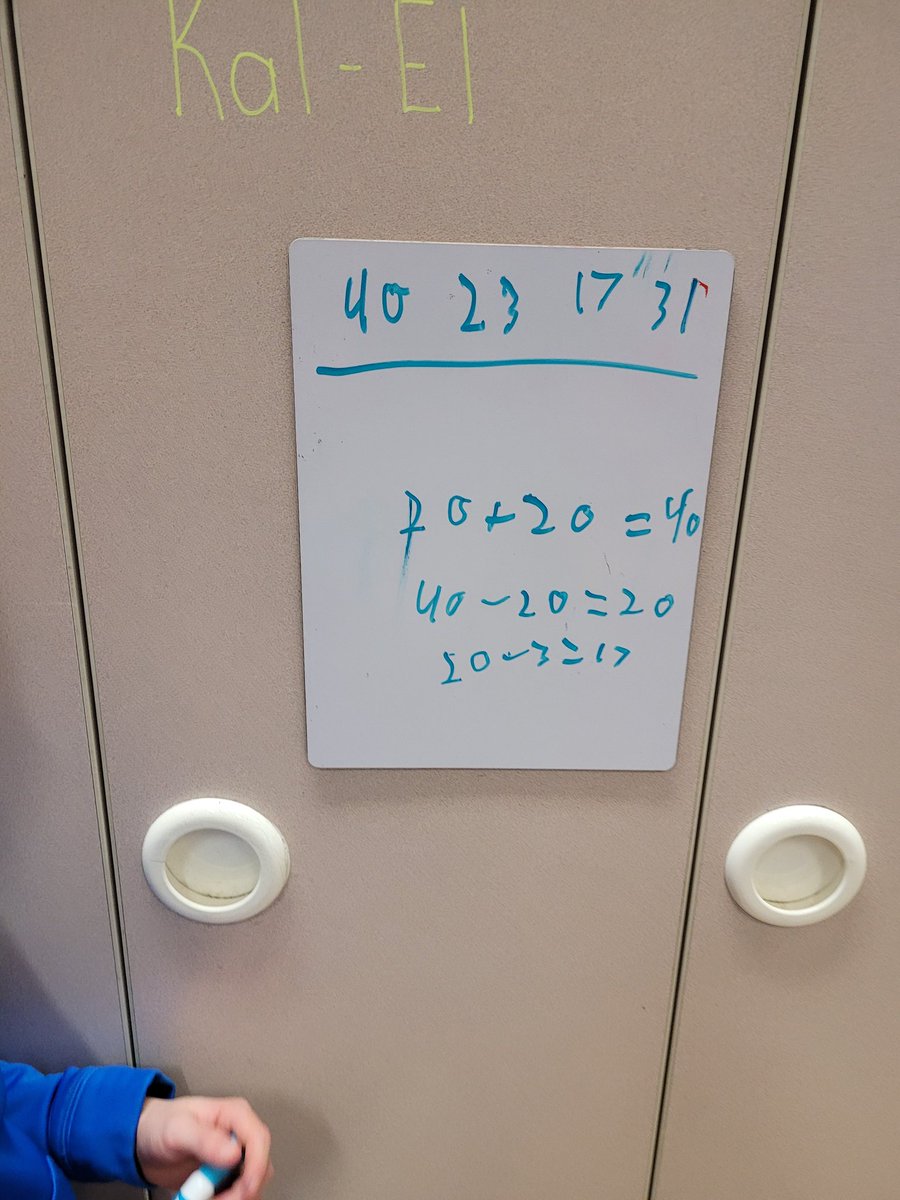 Kal-El
40 23 17 31
20+20=40
40-20=20
20-3=17